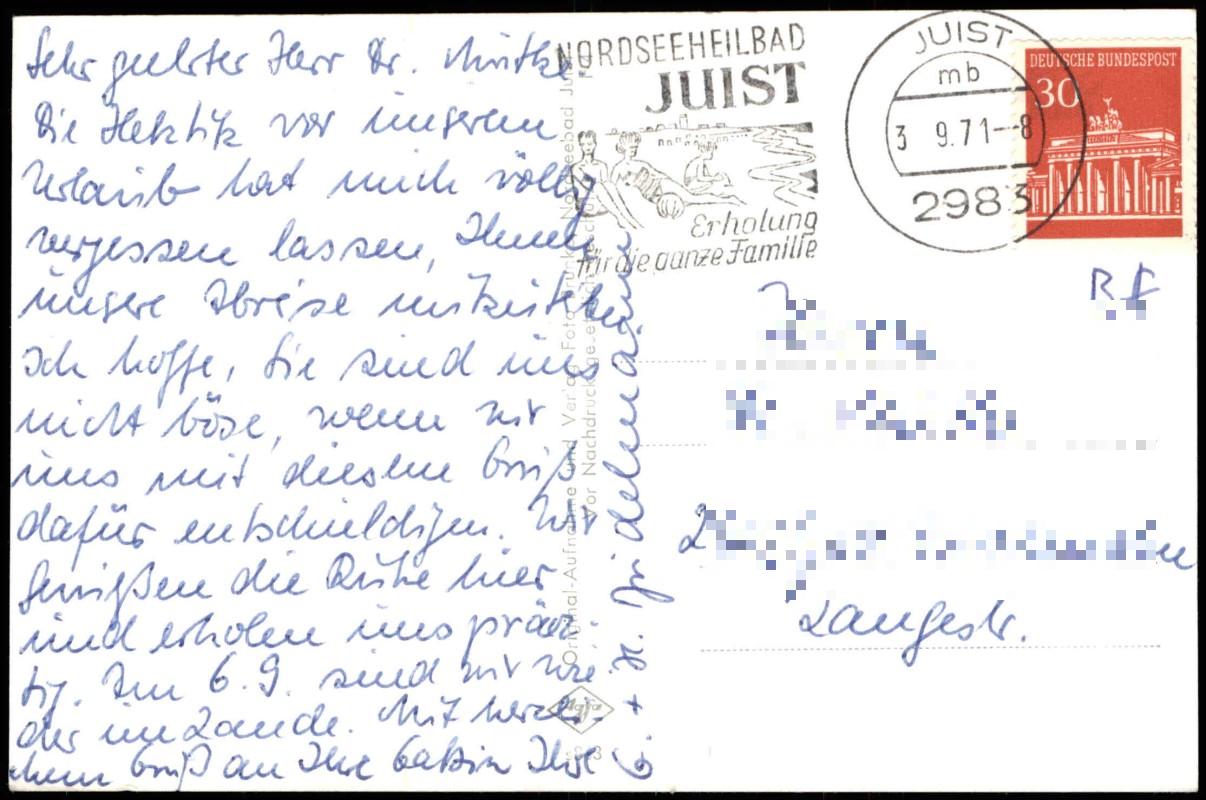 Sehr geehrter Herr Dr.
Die Hektik vor unserem
Urlaub hat mich völlig
vergessen lassen, Ihnen
unsere Abreise mitzuteilen.
Ich hoffe, Sie sind uns
nicht böse, wenn wir
uns mit diesem Gruß
dafür entschuldigen. Wir
genießen die Ruhe hier
und erholen uns präch-
tig. Am 6.9. sind wir wie-
der im Lande. Mit herzli-
chem Gruß an Ihre Gattin Ihre
G. + H.
Original-Aufnahme und Verlag Foto
Vor Nachdruck gesetzlich geschützt
Agfa
NORDSEEHEILBAD
JUIST
Erholung
für die ganze Familie
JUIST
mb
3 9.71--8
2983
DEUTSCHE BUNDESPOST
30
Langestr.